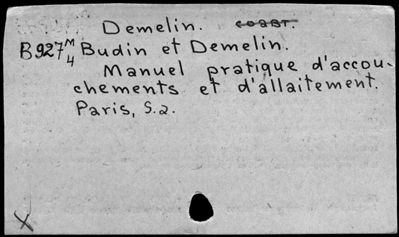 Demelin. coавт.
B927 M/4 Budin et Demelin.
Manuel pratique d'accou-
chements et d'allaitement.
Paris, S.a.
X